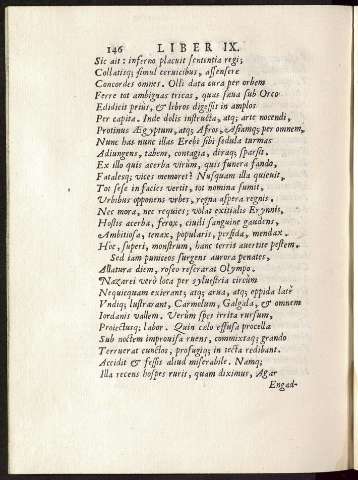 146 LIBER IX.
Sic ait: inferno placuit sententia regi;
Collatisq; simul ceruicibus, assensere
Concordes omnes. Olli data cura per orbem
Ferre tot ambiguas tricas, quas sæua sub Orco
Edidicit prius, & libros digessit in amplos
Per capita. Inde dolis instructa, atq; arte nocendi,
Protinus Ægyptum, atq; Afros, Asiamq; per omnem,
Nunc has nunc illas Erebi sibi fœdula turmas
Adiungens, tabem, contagia, diraq; sparsit.
Ex illo quis acerba virûm, quis funera fando,
Fatalesq; vices memoret? Nusquam illa quieuit,
Tot sese in facies vertit, tot nomina sumit,
Vrbibus opponens vrbes, regna aspera regnis.
Nec mora, nec requies; volat exitialis Erynnis,
Hostis acerba, ferox, ciuili sanguine gaudens,
Ambitiosa, tenax, popularis, perfida, mendax.
Hoc, superi, monstrum, hanc terris auertite pestem.
Sed iam puniceos surgens aurora penates,
Allatura diem, roseo reserarat Olympo.
Nazarei verò loca per syluestria circùm
Nequicquam exierant; atq; arua, atq; oppida latè
Vndiq; lustrarant, Carmelum, Galgala, & omnem
Iordanis vallem. Verùm spes irrita rursum,
Proiectusq; labor. Quin cælo effusa procella
Sub noctem improuisa ruens, commixtaq; grando
Terruerat cunctos, profugiq; in tecta redibant.
Accidit & fessis aliud miserabile. Namq;
Illa recens hospes ruris, quam diximus, Agar
Engad-